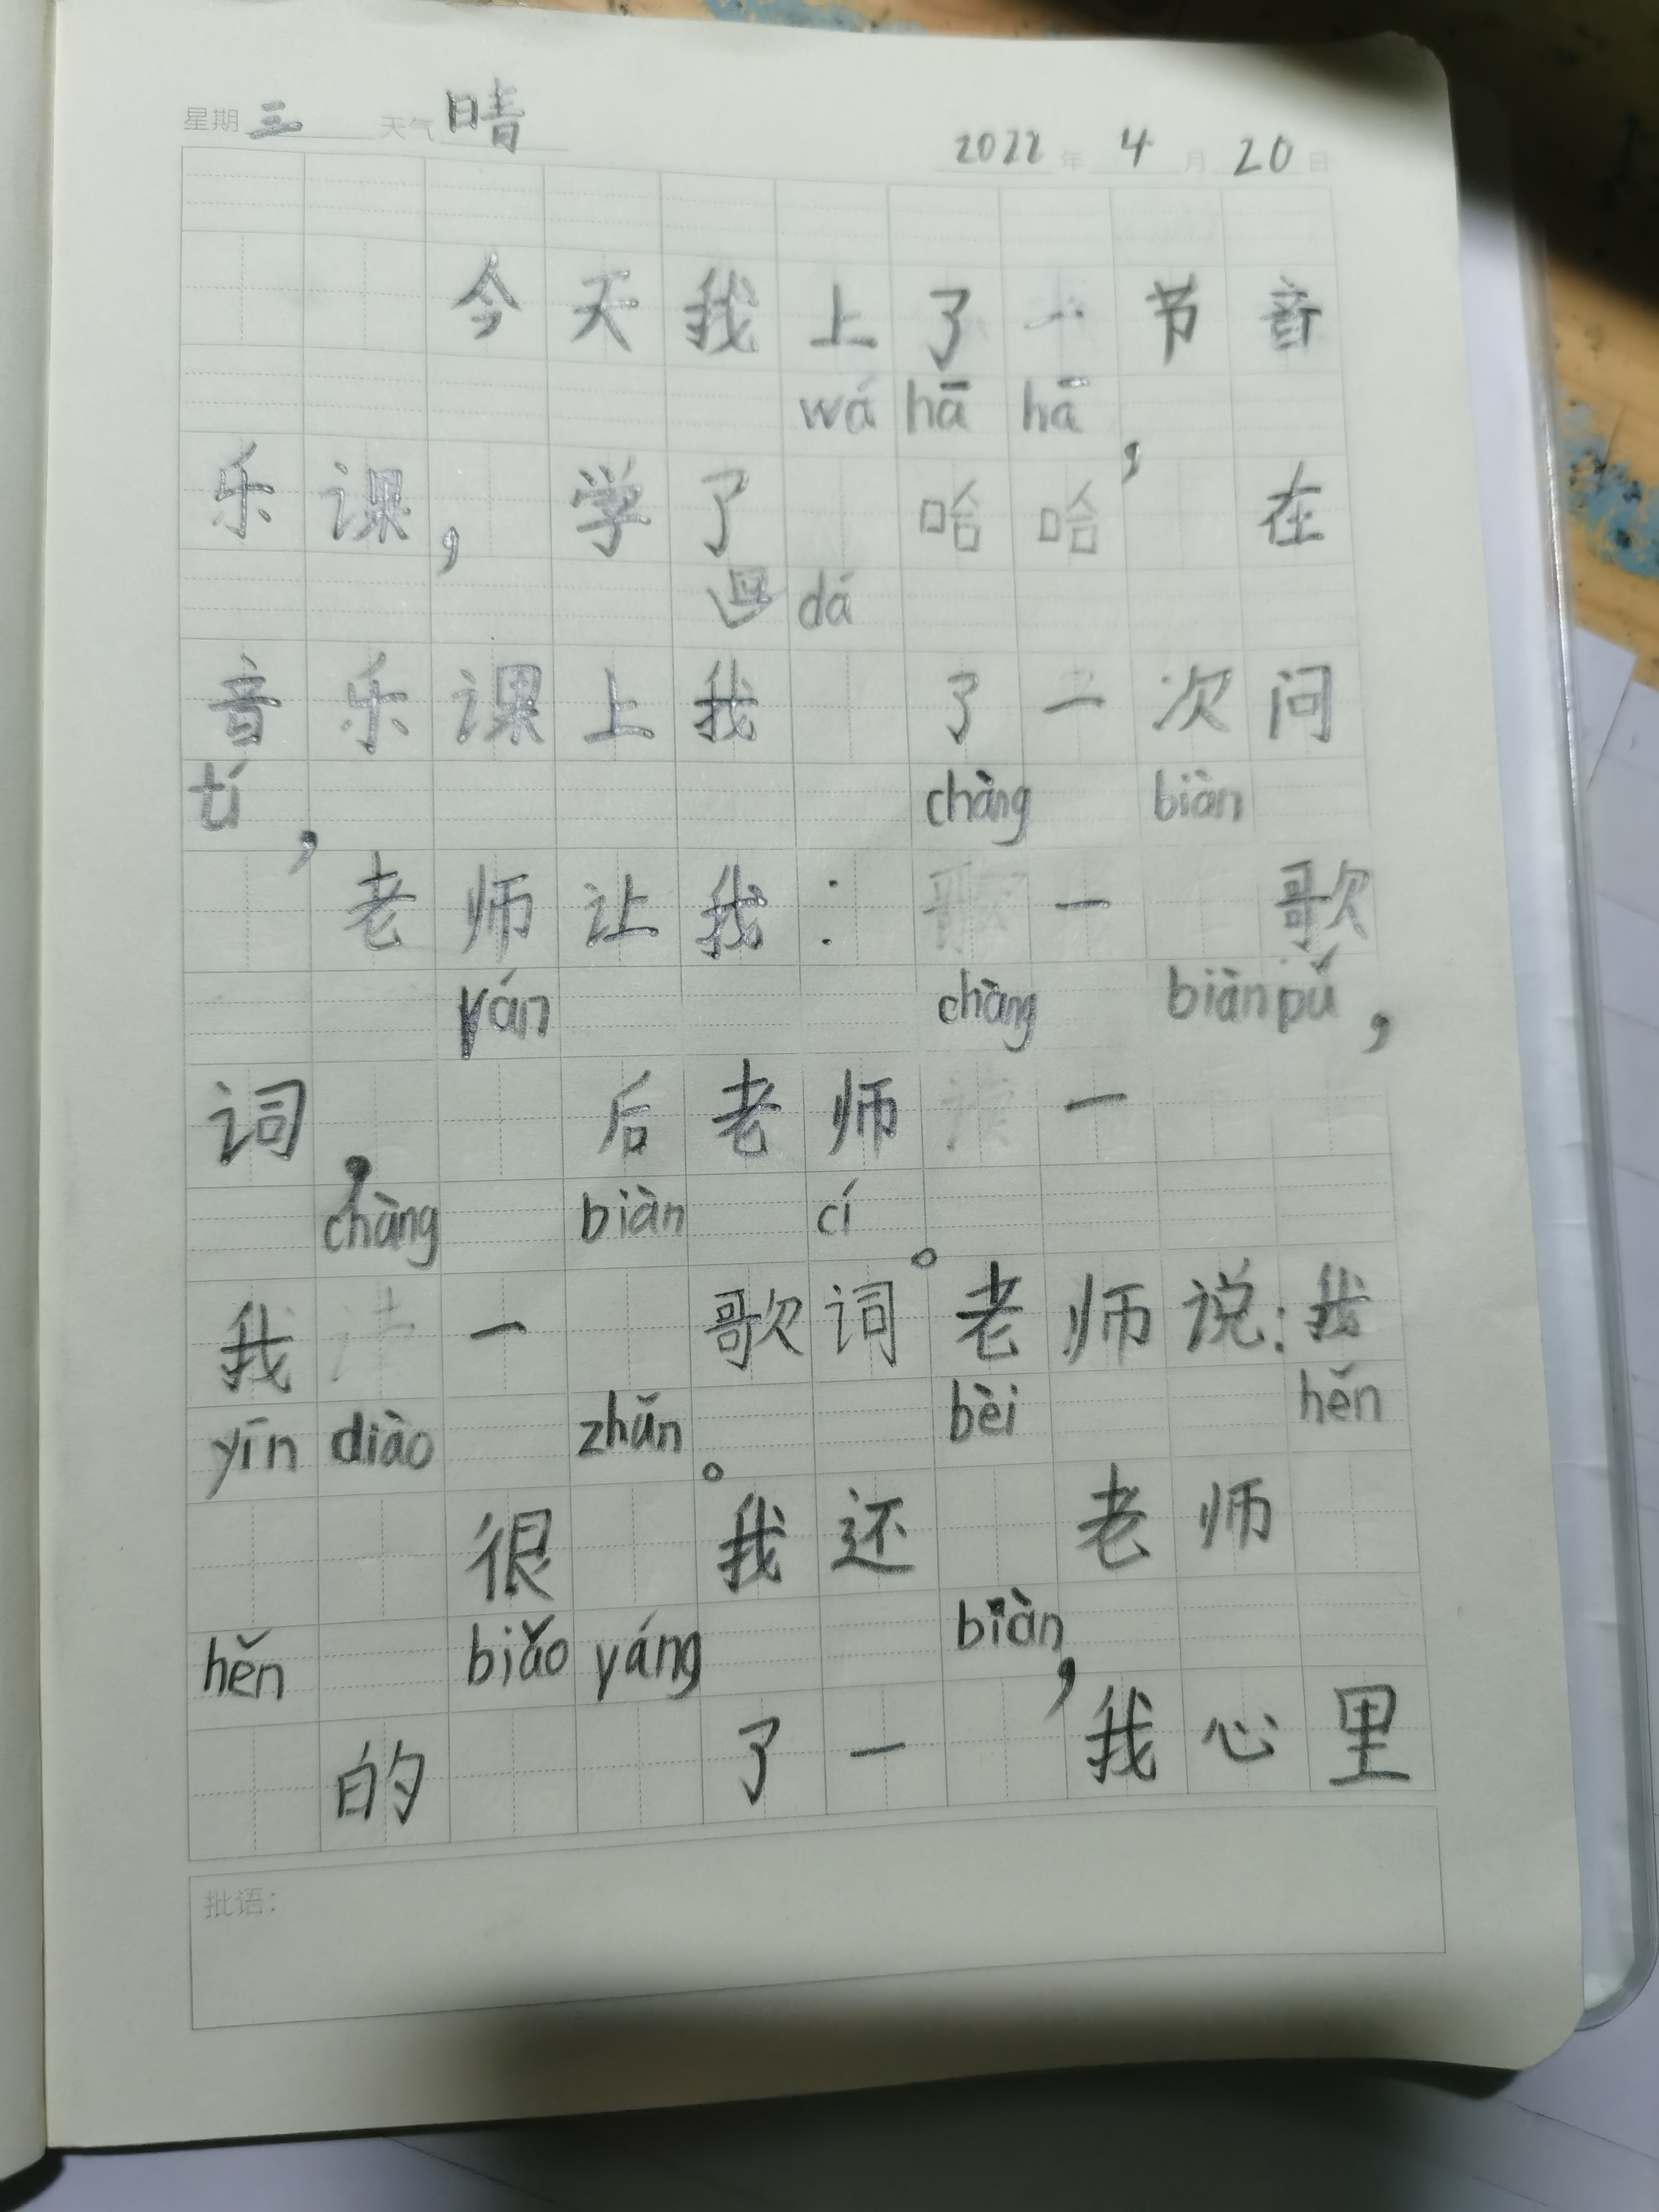 星期 三 天气 晴
2022 年 4 月 20 日
今天我上了一节音
wá hā hā
乐课，学了 哈哈，在
回 dá
音乐课上我 了一次问
tí， chàng biàn
老师让我： 一 歌
yán chàng biàn pǔ，
词， 后老师 一
chàng biàn cí。
我 一 歌词 老师说：我
yīn diào zhǔn。 bèi hěn
很 我还 老师
hěn biǎo yáng biàn，
的 了一 我心里
批语：